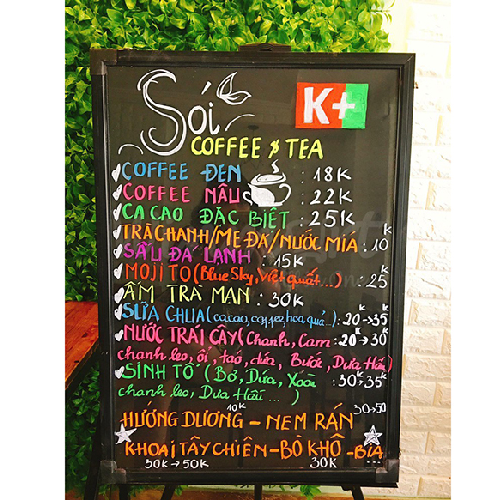 Sói
K+
COFFEE & TEA
COFFEE ĐEN : 18K
COFFEE NÂU : 22K
CA CAO ĐẶC BIỆT : 25K
TRÀ CHANH/ME ĐÁ/NƯỚC MÍA : 10K
SẤU ĐÁ LẠNH : 15K
MOJITO (Blue Sky, Việt quất...) : 25K
ẤM TRÀ MAN : 30K
SỮA CHUA (cacao, coffee, hoa quả..) : 20K→35K
NƯỚC TRÁI CÂY (Chanh, Cam 20K→30K
chanh leo, ổi, táo, dứa, Bưởi, Dưa Hấu)
SINH TỐ (Bơ, Dừa, Xoài 30→35K
chanh leo, Dưa Hấu ...)
10K 30→50
HƯỚNG DƯƠNG - NEM RÁN
KHOAI TÂY CHIÊN - BÒ KHÔ - BIA
50K→50K 30K